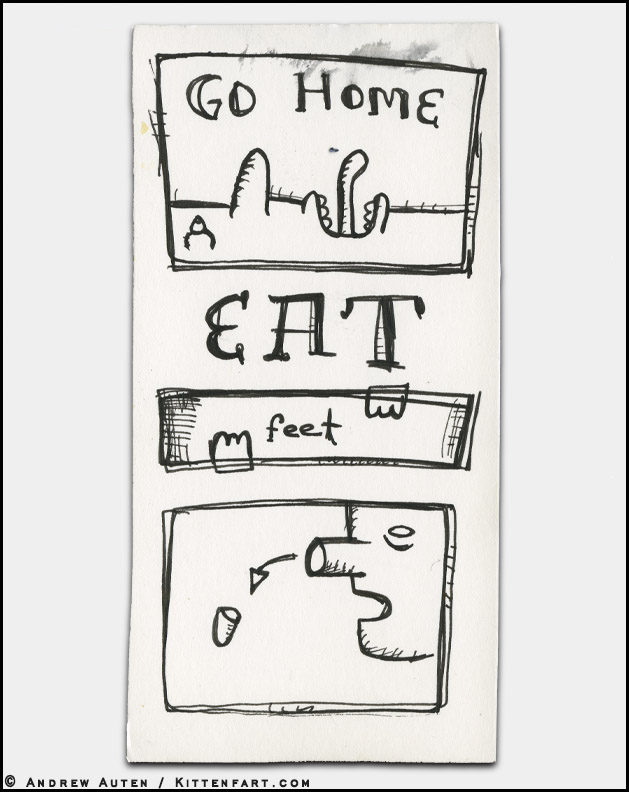 GO HOME
EAT
feet
© ANDREW AUTEN / KITTENFART.COM